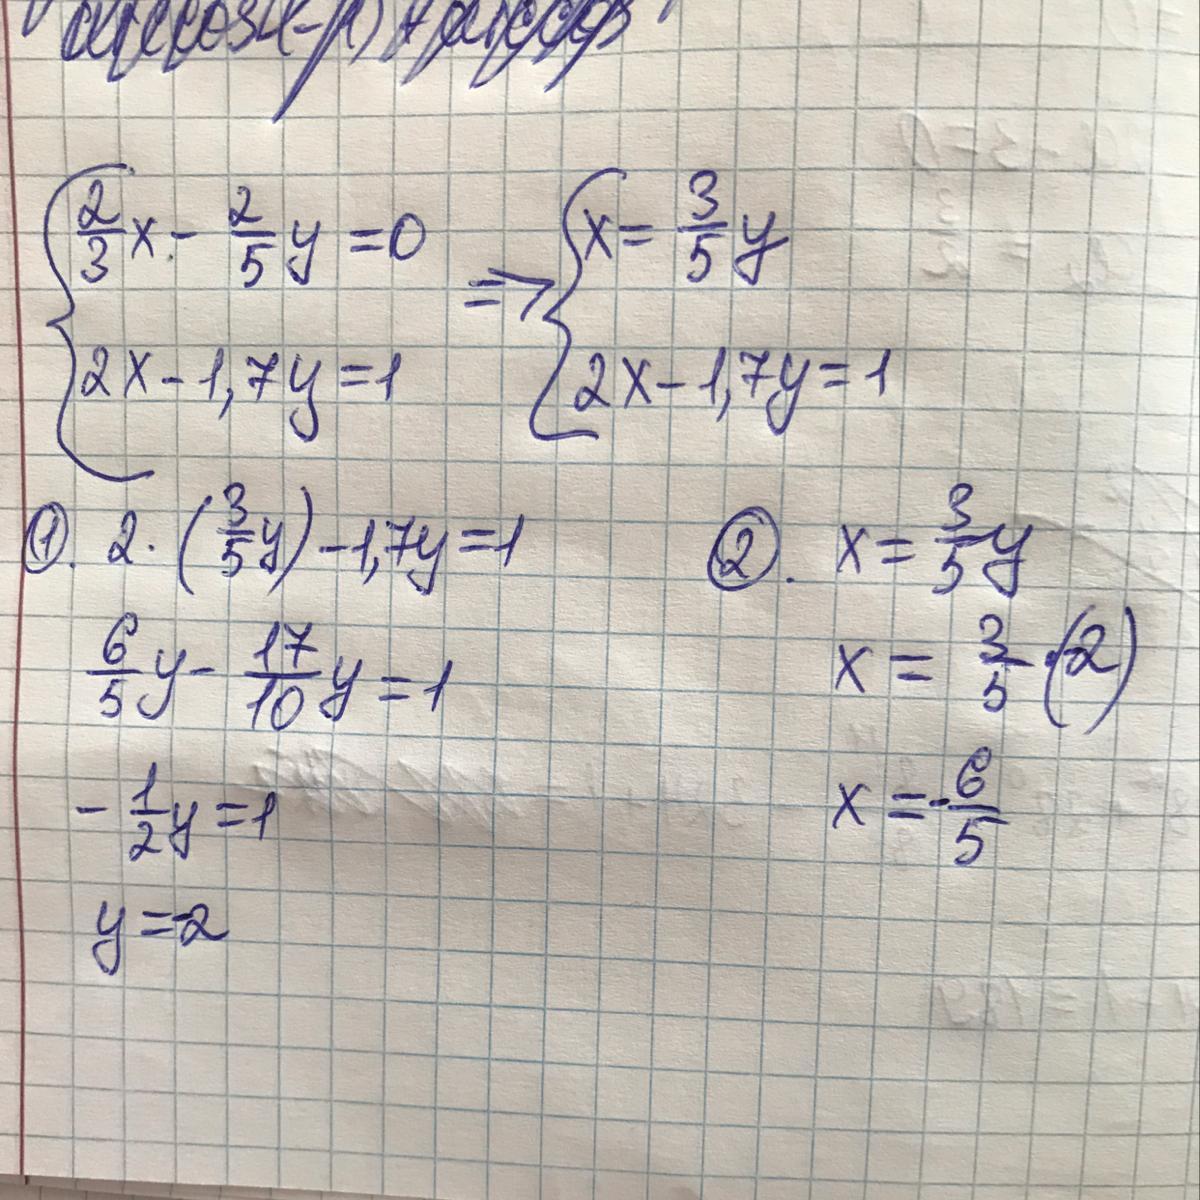 2/3 x - 2/5 y = 0 => x = 3/5 y
2x - 1,7y = 1 2x - 1,7y = 1
①. 2·(3/5 y) - 1,7y = 1
6/5 y - 17/10 y = 1
- 1/2 y = 1
y = -2
②. x = 3/5 y
x = 3/5 · (-2)
x = - 6/5